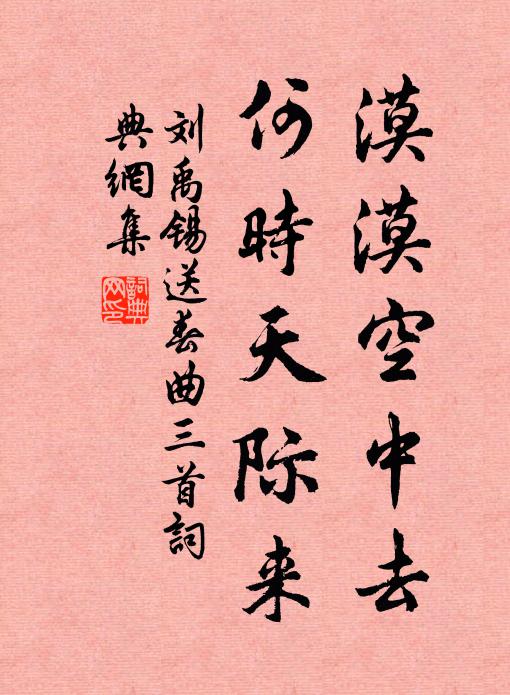 漠漠空中去
何時天际来
刘禹锡送春曲三首詞
典網集
詞典网印